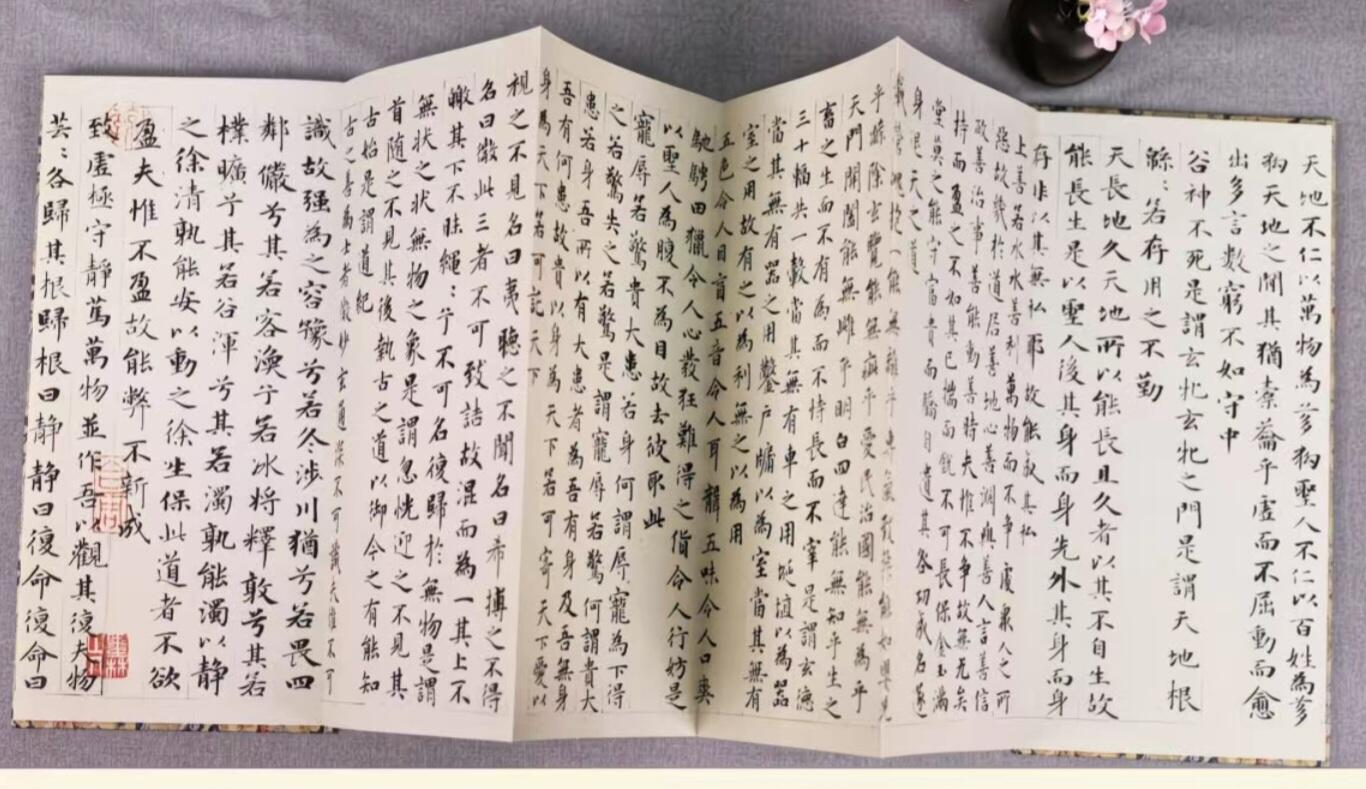 天地不仁以萬物為芻狗聖人不仁以百姓為芻
狗天地之間其猶橐籥乎虛而不屈動而愈
出多言數窮不如守中
谷神不死是謂玄牝玄牝之門是謂天地根
緜〻若存用之不勤
天長地久天地所以能長且久者以其不自生故
能長生是以聖人後其身而身先外其身而身
存非以其無私耶故能成其私
上善若水水善利萬物而不爭處衆人之所
惡故幾於道居善地心善淵與善人言善信
政善治事善能動善時夫惟不爭故無尤矣
持而盈之不如其已揣而銳不可長保金玉滿
堂莫之能守富貴而驕自遺其咎功成名遂
身退天之道
載營魄抱一能無離乎專氣致柔能如嬰兒
乎滌除玄覽能無疵乎愛民治國能無為乎
天門開闔能無雌乎明白四達能無知乎生之
畜之生而不有為而不恃長而不宰是謂玄德
三十輻共一轂當其無有車之用埏埴以為器
當其無有器之用鑿戶牖以為室當其無有
室之用故有之以為利無之以為用
五色令人目盲五音令人耳聾五味令人口爽
馳騁田獵令人心發狂難得之貨令人行妨是
以聖人為腹不為目故去彼取此
寵辱若驚貴大患若身何謂辱寵為下得
之若驚失之若驚是謂寵辱若驚何謂貴大
患若身吾所以有大患者為吾有身及吾無身
吾有何患故貴以身為天下若可寄天下愛以
身為天下若可託天下
視之不見名曰夷聽之不聞名曰希搏之不得
名曰微此三者不可致詰故混而為一其上不
皦其下不昧繩〻兮不可名復歸於無物是謂
無狀之狀無物之象是謂忽恍迎之不見其
首隨之不見其後執古之道以御今之有能知
古始是謂道紀
古之善為士者微妙玄通深不可識夫惟不可
識故强為之容豫兮若冬涉川猶兮若畏四
鄰儼兮其若容渙兮若冰將釋敦兮其若
樸曠兮其若谷渾兮其若濁孰能濁以静
之徐清孰能安以動之徐生保此道者不欲
盈夫惟不盈故能弊不新成
致虛極守静篤萬物並作吾以觀其復夫物
芸〻各歸其根歸根曰静静曰復命復命曰